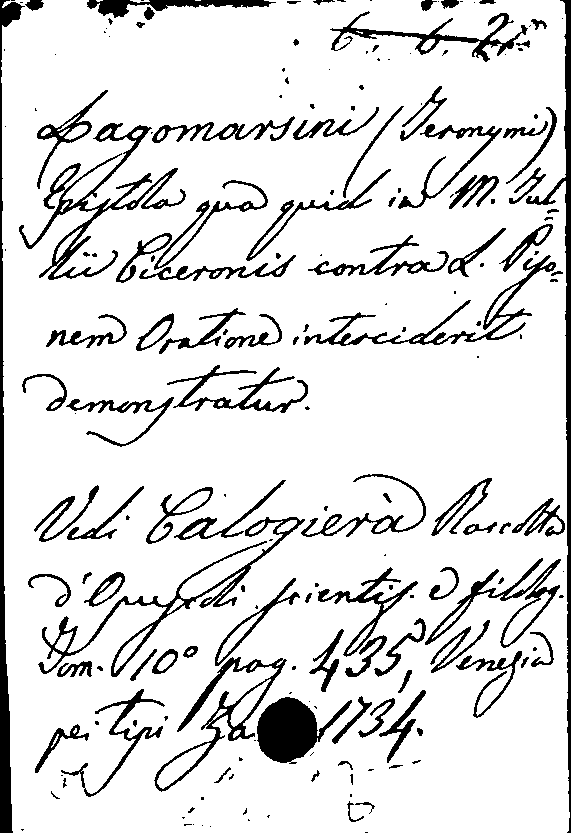 6. 6. 21
Lagomarsini (Jeronymi)
Epistola qua quid in M. Tul=
lii Ciceronis contra L. Piso=
nem Oratione interciderit
demonstratur.
Vedi Calogierà Raccolta
d'Opuscoli scientif. e filolog.
Tom. 10º pag. 435, Venezia
pei tipi Za 1734.